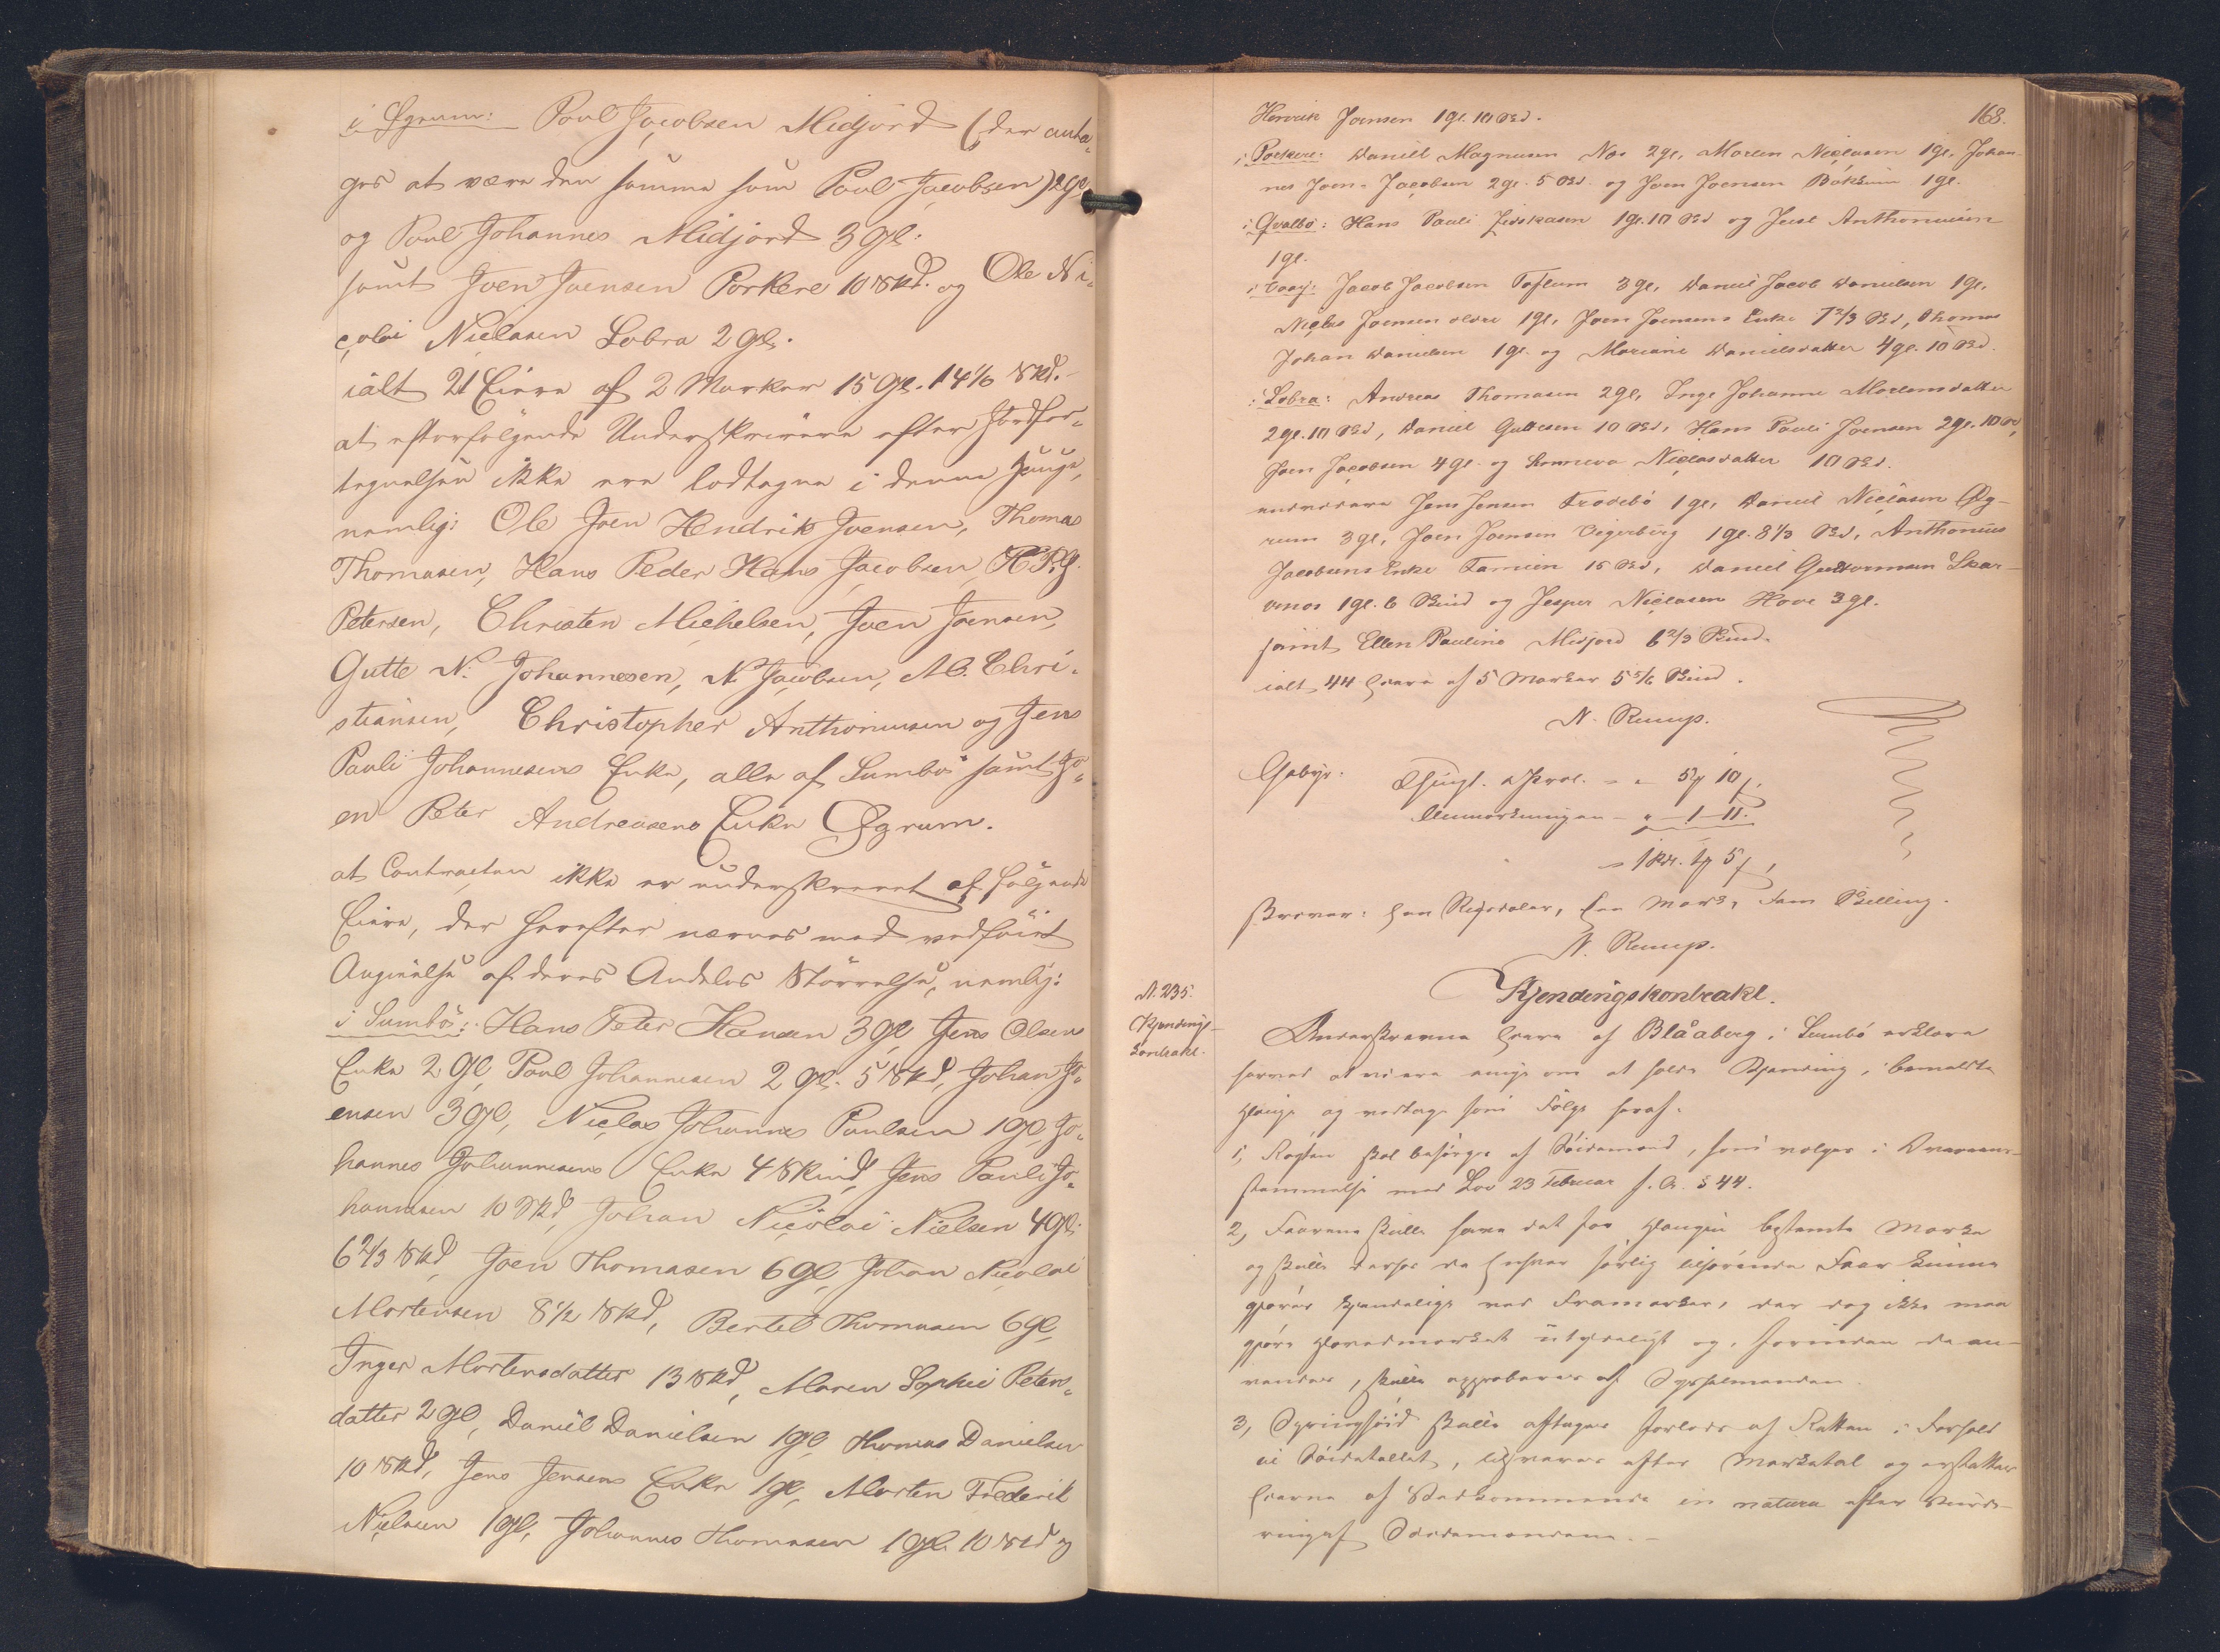 i Øgrum: Poul Jacobsen Midjord (der anta-
ges at være den samme som Poul Jacobsen) 2 Gl.
og Poul Johannes Midjord 3 Gl.
samt Joen Joensen Porkere 10 Skd. og Ole Ni-
colai Nielasen Lobra 2 Gl.
ialt 21 Eiere af 2 Marker 15 Gl. 14 1/6 Skd.
at efterfølgende Underskrivere efter Jordfor-
tegnelsen ikke ere lodtagne i denne Hauge,
nemlig: Ole Joen Hendrik Joensen, Thomas
Thomasen, Hans Peder Hans Jacobsen, H. P. G.
Petersen, Christen Michelsen, Joen Joensen,
Gutte N. Johannesen, N. Jacobsen, M. Chri-
stiansen, Christopher Anthoniusen og Jens
Pauli Johannesens Enke, alle af Sumbö samt Jo-
en Peter Andreasens Enke Øgrum.
at Contracten ikke er underskrevet af følgende
Eiere, der herefter nævnes med vedføiet
Angivelse af deres Andeles Störrelse, nemlig:
i Sumbö: Hans Peter Hansen 3 Gl, Jens Olsens
Enke 2 Gl, Poul Johannesen 2 Gl. 5 Skd, Johan Jo-
ensen 3 Gl, Niclas Johannes Poulsen 1 Gl, Jo-
hannes Johannesens Enke 4 Skind, Jens Pauli Jo-
hannesen 10 Skd, Johan Nicolai Nielsen 4 Gl.
6 2/3 Skd, Joen Thomasen 6 Gl, Johan Nicolai
Mortensen 8 1/2 Skd, Bertel Thomasen 6 Gl,
Inger Mortensdatter 13 Skd, Maren Sophie Peters-
datter 2 Gl, Daniel Danielsen 1 Gl, Thomas Danielsen
10 Skd, Jens Jensens Enke 1 Gl, Morten Frederik
Nielsen 1 Gl, Johannes Thomasen 1 Gl. 10 Skd og
168.
Joensen 1 Gl. 10 Skd.
i Porkere: Daniel Magnusen Næs 2 gl, Morten Niclasen 1 gl, Johan-
nes Joen Jacobsen 2 gl. 5 Skd. og Joen Joensen 1 gl.
i Qvalbö: Hans Pauli 1 gl. 10 Skd og Anthoniusen
1 gl.
i Vaag: Jacob Jacobsen Toftum 3 gl, Daniel Jacob Danielsen 1 gl,
Niclas Joensen ældre 1 gl, Joen Joensens Enke 7 2/3 Skd, Thomas
Johan Danielsen 1 gl. og Mariane Danielsdatter 4 gl. 10 Skd.
i Lobra: Andreas Thomasen 2 gl, Inge Johanne Mortensdatter
2 gl. 10 Skd, Daniel Guttesen 10 Skd, Hans Pauli Joensen 2 gl. 10 Skd,
Joen Jacobsen 4 gl. og Niclasdatter 10 Skd.
endvidere Jens Jensen Frodebö 1 gl, Daniel Niclasen Øg-
rum 3 gl, Joen Joensen 1 gl. 8 1/3 Skd, Anthonius
Jacobsens Enke Famien 15 Skd, Daniel Guttormsen Skar-
1 gl. 6 Skind og Jesper Niclasen Hove 3 gl.
samt Ellen Pauline Midjord 6 2/3 Skind.
ialt 44 Eiere af 5 Marker 5 5/6 Skind.
N. Rump.
Gebyr: 5 10
Anmærkningen 1 11.
1 Rd. 1 5
Skriver: Een Rigsdaler, Een Mark, Fem Skilling.
N. Rump.
N. 235.
Kjendings-
kontrakt.
Kjendingskontrakt.
Underskrevne Eiere af Blåaberg i Sumbö erklære
herved at vi ere enige om at holde Kjending i bemeldte
Hauge og vedtage som Følge heraf.
1, Røgten skal besørges af Søidemænd, som vælges i Overeens-
stemmelse med Lov 23 Februar f. A. § 44.
2, Faarene skulle have det for Haugen bestemte Mærke
og skulle derfor de Enhver særlig tilhörende Faar kunne
gjøres kjendelige ved Fremærker, der dog ikke maa
gjøre Hovedmærket utydeligt og, forinden de an-
vendes, skulle approberes af Sysselmanden.
3, skulle aftages forlods af Flokken i Forhold
til Söidetallet, efter Marketal og erstattes
Eierne af Vedkommende in natura efter Vurde-
ring af Söidemændene.